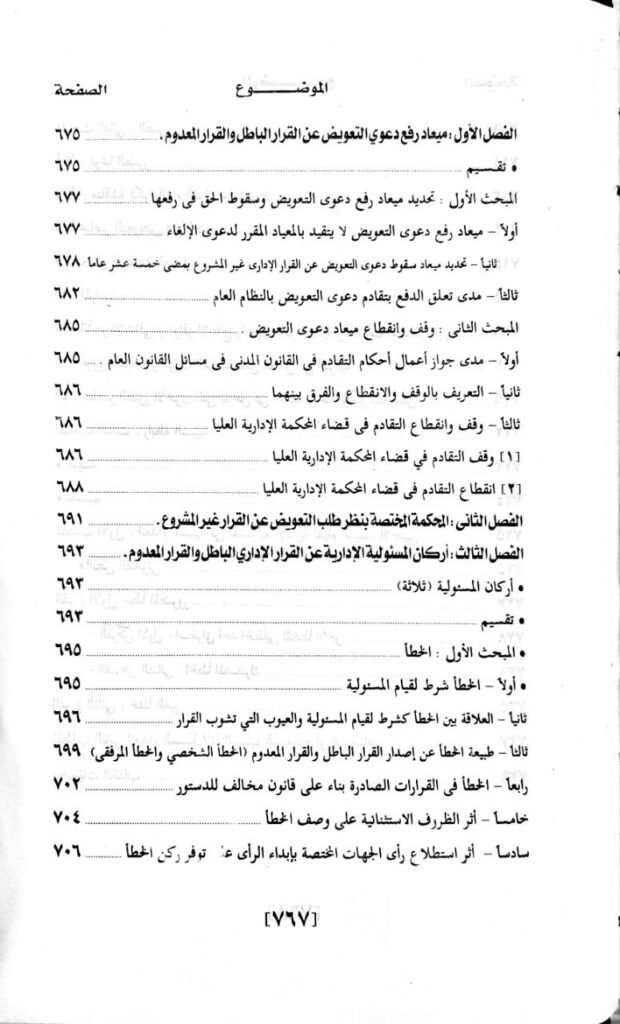 الموضــــوع الصفحة
الفصل الأول : ميعاد رفع دعوي التعويض عن القرار الباطل والقرار المعدوم . ٦٧٥
• تقسيم ٦٧٥
المبحث الأول : تحديد ميعاد رفع دعوى التعويض وسقوط الحق فى رفعها ٦٧٧
أولاً – ميعاد رفع دعوى التعويض لا يتقيد بالمعياد المقرر لدعوى الإلغاء ٦٧٧
ثانياً – تحديد ميعاد سقوط دعوى التعويض عن القرار الإدارى غير المشروع بمضى خمسة عشر عاماً ٦٧٨
ثالثاً – مدى تعلق الدفع بتقادم دعوى التعويض بالنظام العام ٦٨٢
المبحث الثانى : وقف وانقطاع ميعاد دعوى التعويض . ٦٨٥
أولاً – مدى جواز أعمال أحكام التقادم فى القانون المدنى فى مسائل القانون العام . ٦٨٥
ثانياً – التعريف بالوقف والانقطاع والفرق بينهما ٦٨٦
ثالثاً – وقف وانقطاع التقادم فى قضاء المحكمة الإدارية العليا ٦٨٦
[١] وقف التقادم في قضاء المحكمة الإدارية العليا ٦٨٦
[٢] انقطاع التقادم فى قضاء المحكمة الإدارية العليا ٦٨٨
الفصل الثانى : المحكمة المختصة بنظر طلب التعويض عن القرار غير المشروع . ٦٩١
الفصل الثالث : أركان المسئولية الإدارية عن القرار الإداري الباطل والقرار المعدوم . ٦٩٣
• أركان المسئولية (ثلاثة) ٦٩٣
• تقسيم ٦٩٣
• المبحث الأول : الخطأ ٦٩٥
• أولاً – الخطأ شرط لقيام المسئولية ٦٩٥
ثانياً – العلاقة بين الخطأ كشرط لقيام المسئولية والعيوب التي تشوب القرار ٦٩٦
ثالثاً – طبيعة الخطأ عن إصدار القرار الباطل والقرار المعدوم (الخطأ الشخصي والخطأ المرفقى) ٦٩٩
رابعاً – الخطأ فى القرارات الصادرة بناء على قانون مخالف للدستور ٧٠٢
خامساً – أثر الظروف الاستثنائية على وصف الخطأ ٧٠٤
سادساً – أثر استطلاع رأى الجهات المختصة بإبداء الرأى توفر ركن الخطأ ٧٠٦
[٧٦٧]